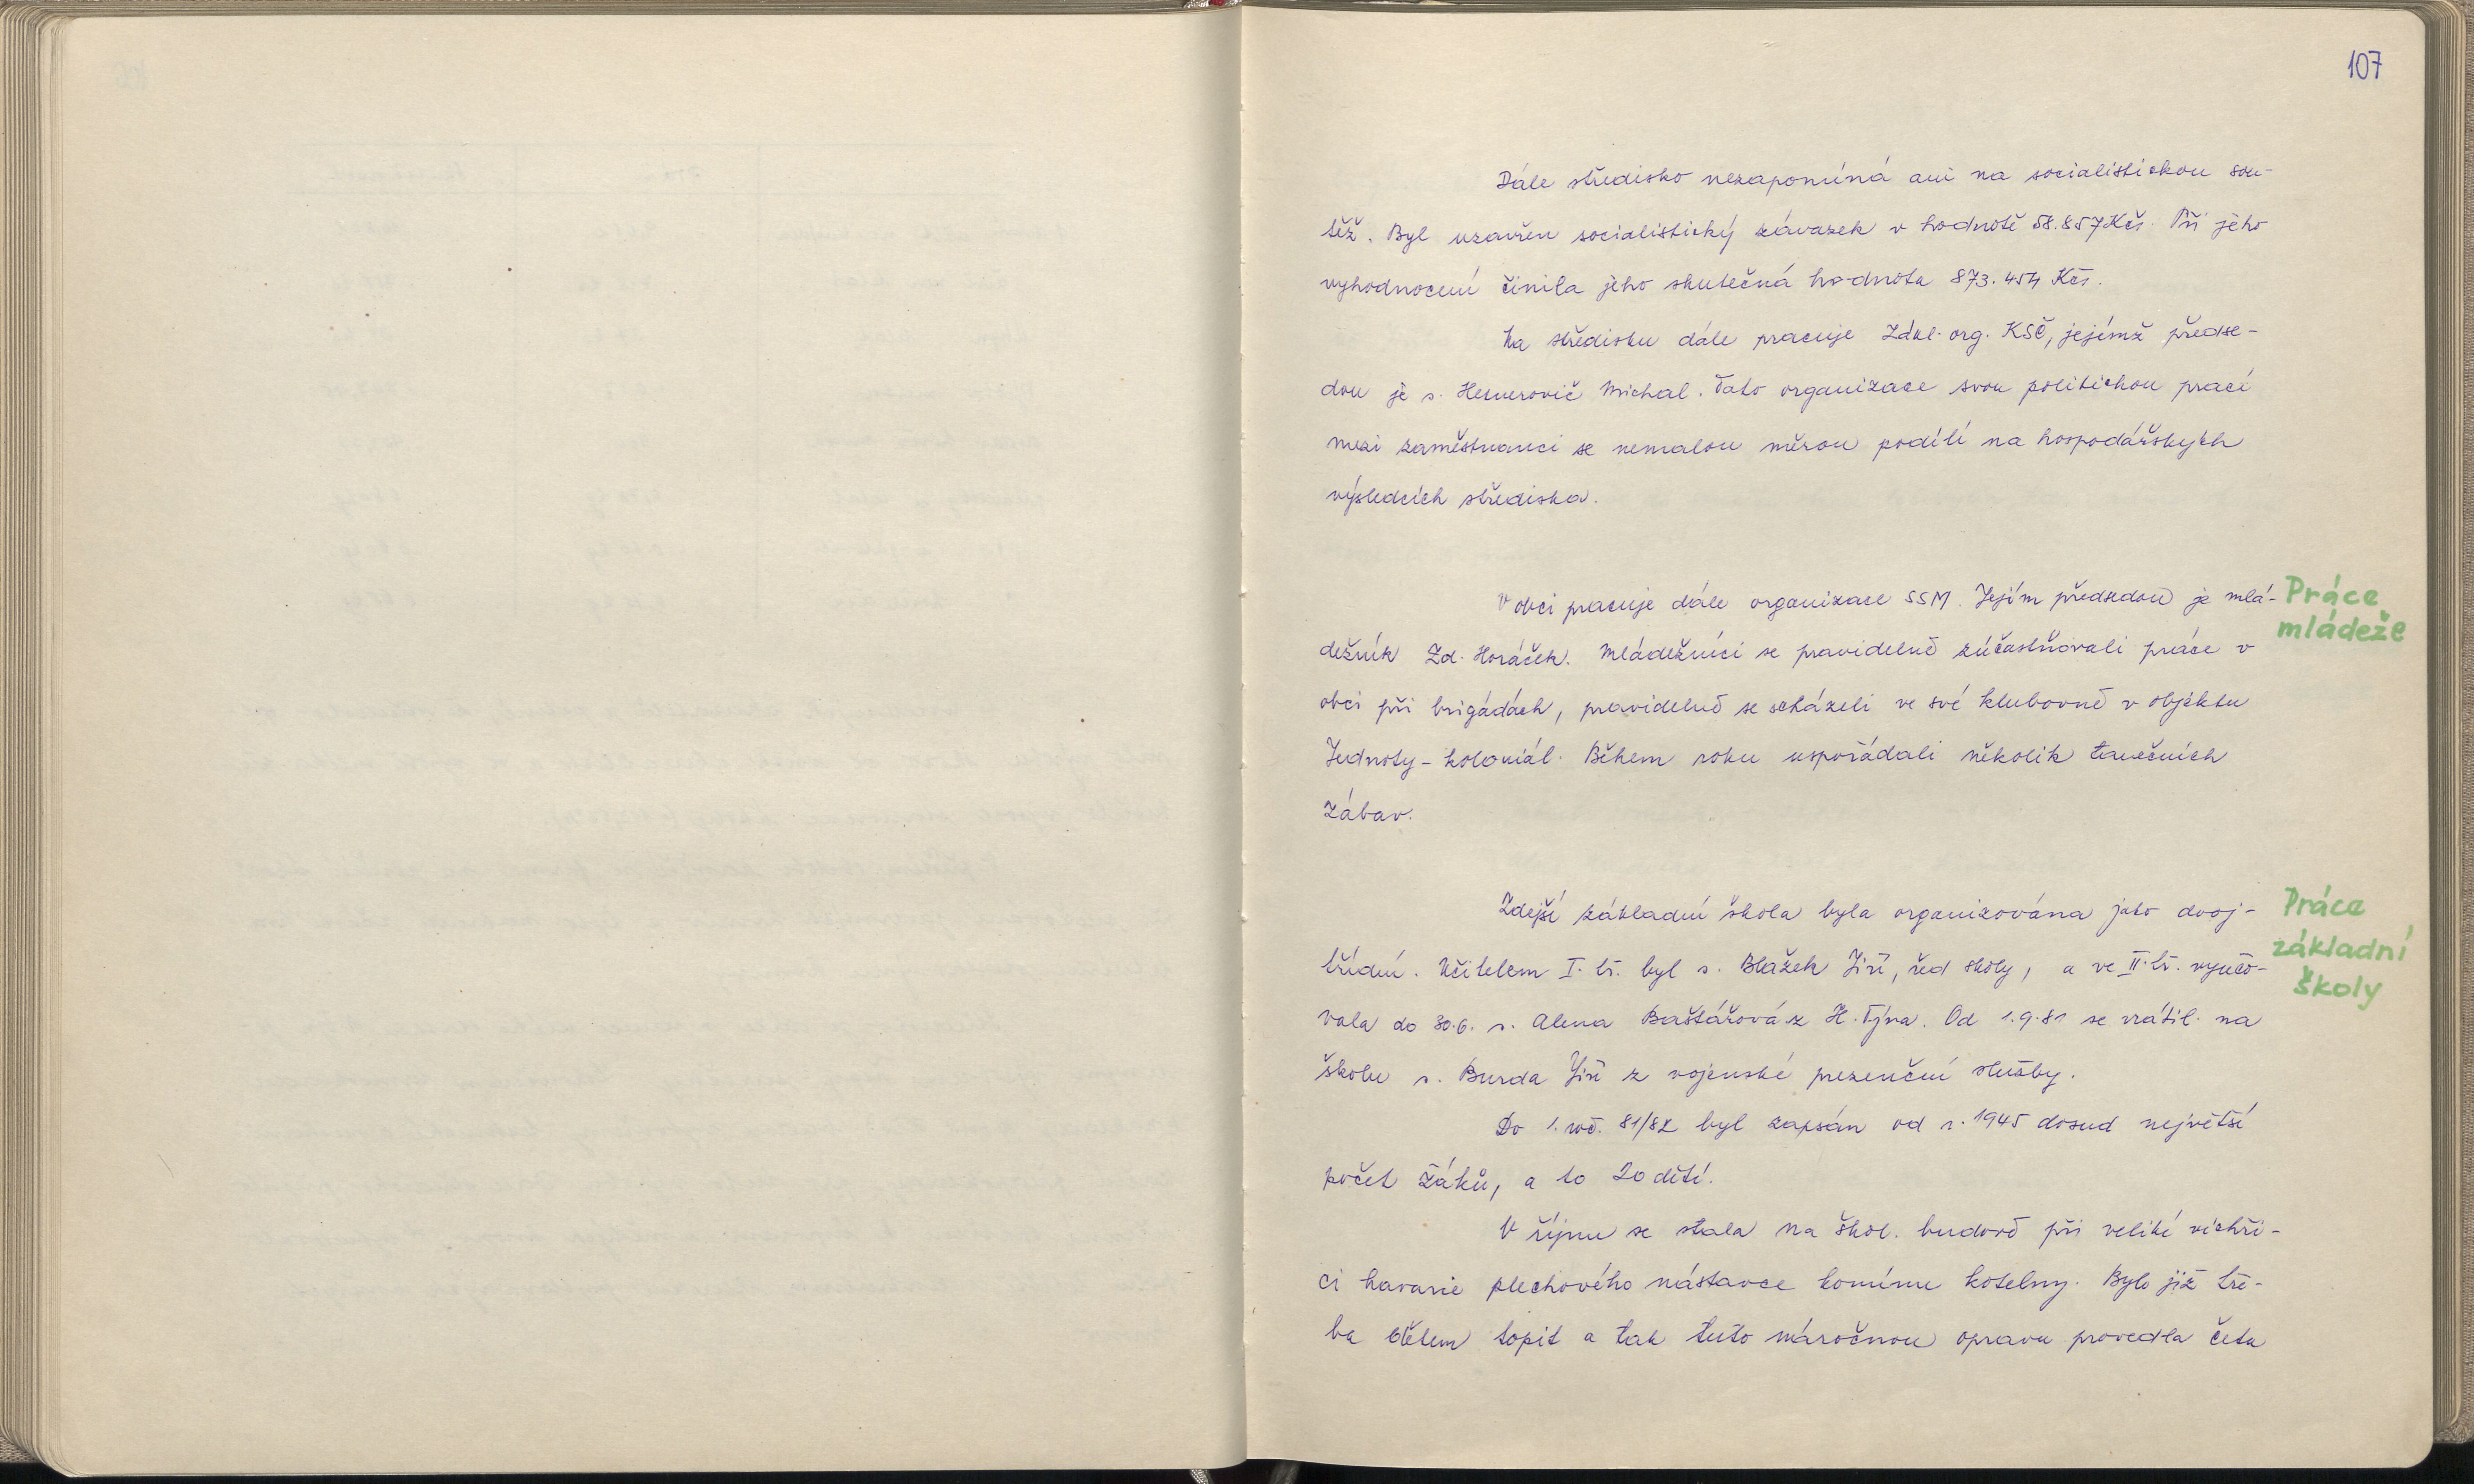 107
Dále středisko nezapomíná ani na socialistickou sou-
těž. Byl uzavřen socialistický závazek v hodnotě 58.857 Kčs. Při jeho
vyhodnocení činila jeho skutečná hodnota 873.454 Kčs.
Na středisku dále pracuje Zákl. org. KSČ, jejímž předse-
dou je s. Michal. Tato organizace svou politickou prací
mezi zaměstnanci se nemalou měrou podílí na hospodářských
výsledcích střediska.
V obci pracuje dále organizace SSM. Jejím předsedou je mlá-
Práce
mládeže
dežník Zd. Horáček. Mládežníci se pravidelně zúčastňovali práce v
obci při brigádách, pravidelně se scházeli ve své klubovně v objektu
Jednoty - koloniál. Během roku uspořádali několik tanečních
zábav.
Zdejší základní škola byla organizována jako dvoj-
Práce
základní
školy
třídní. Učitelem I. tř. byl s. Blažek Jiří, řed školy, a ve II. tř. vyučo-
vala do 30.6. s. Alena Baštářová z H. Týna. Od 1.9.81 se vrátil na
školu s. Burda Jiří z vojenské prezenční služby.
Do 1. roč. 81/82 byl zapsán od r. 1945 dosud největší
počet žáků, a to 20 dětí.
V říjnu se stala na škol. budově při veliké vichři-
ci havarie plechového nástavce komínu kotelny. Bylo již tře-
ba topit a tak tuto náročnou opravu provedla četa